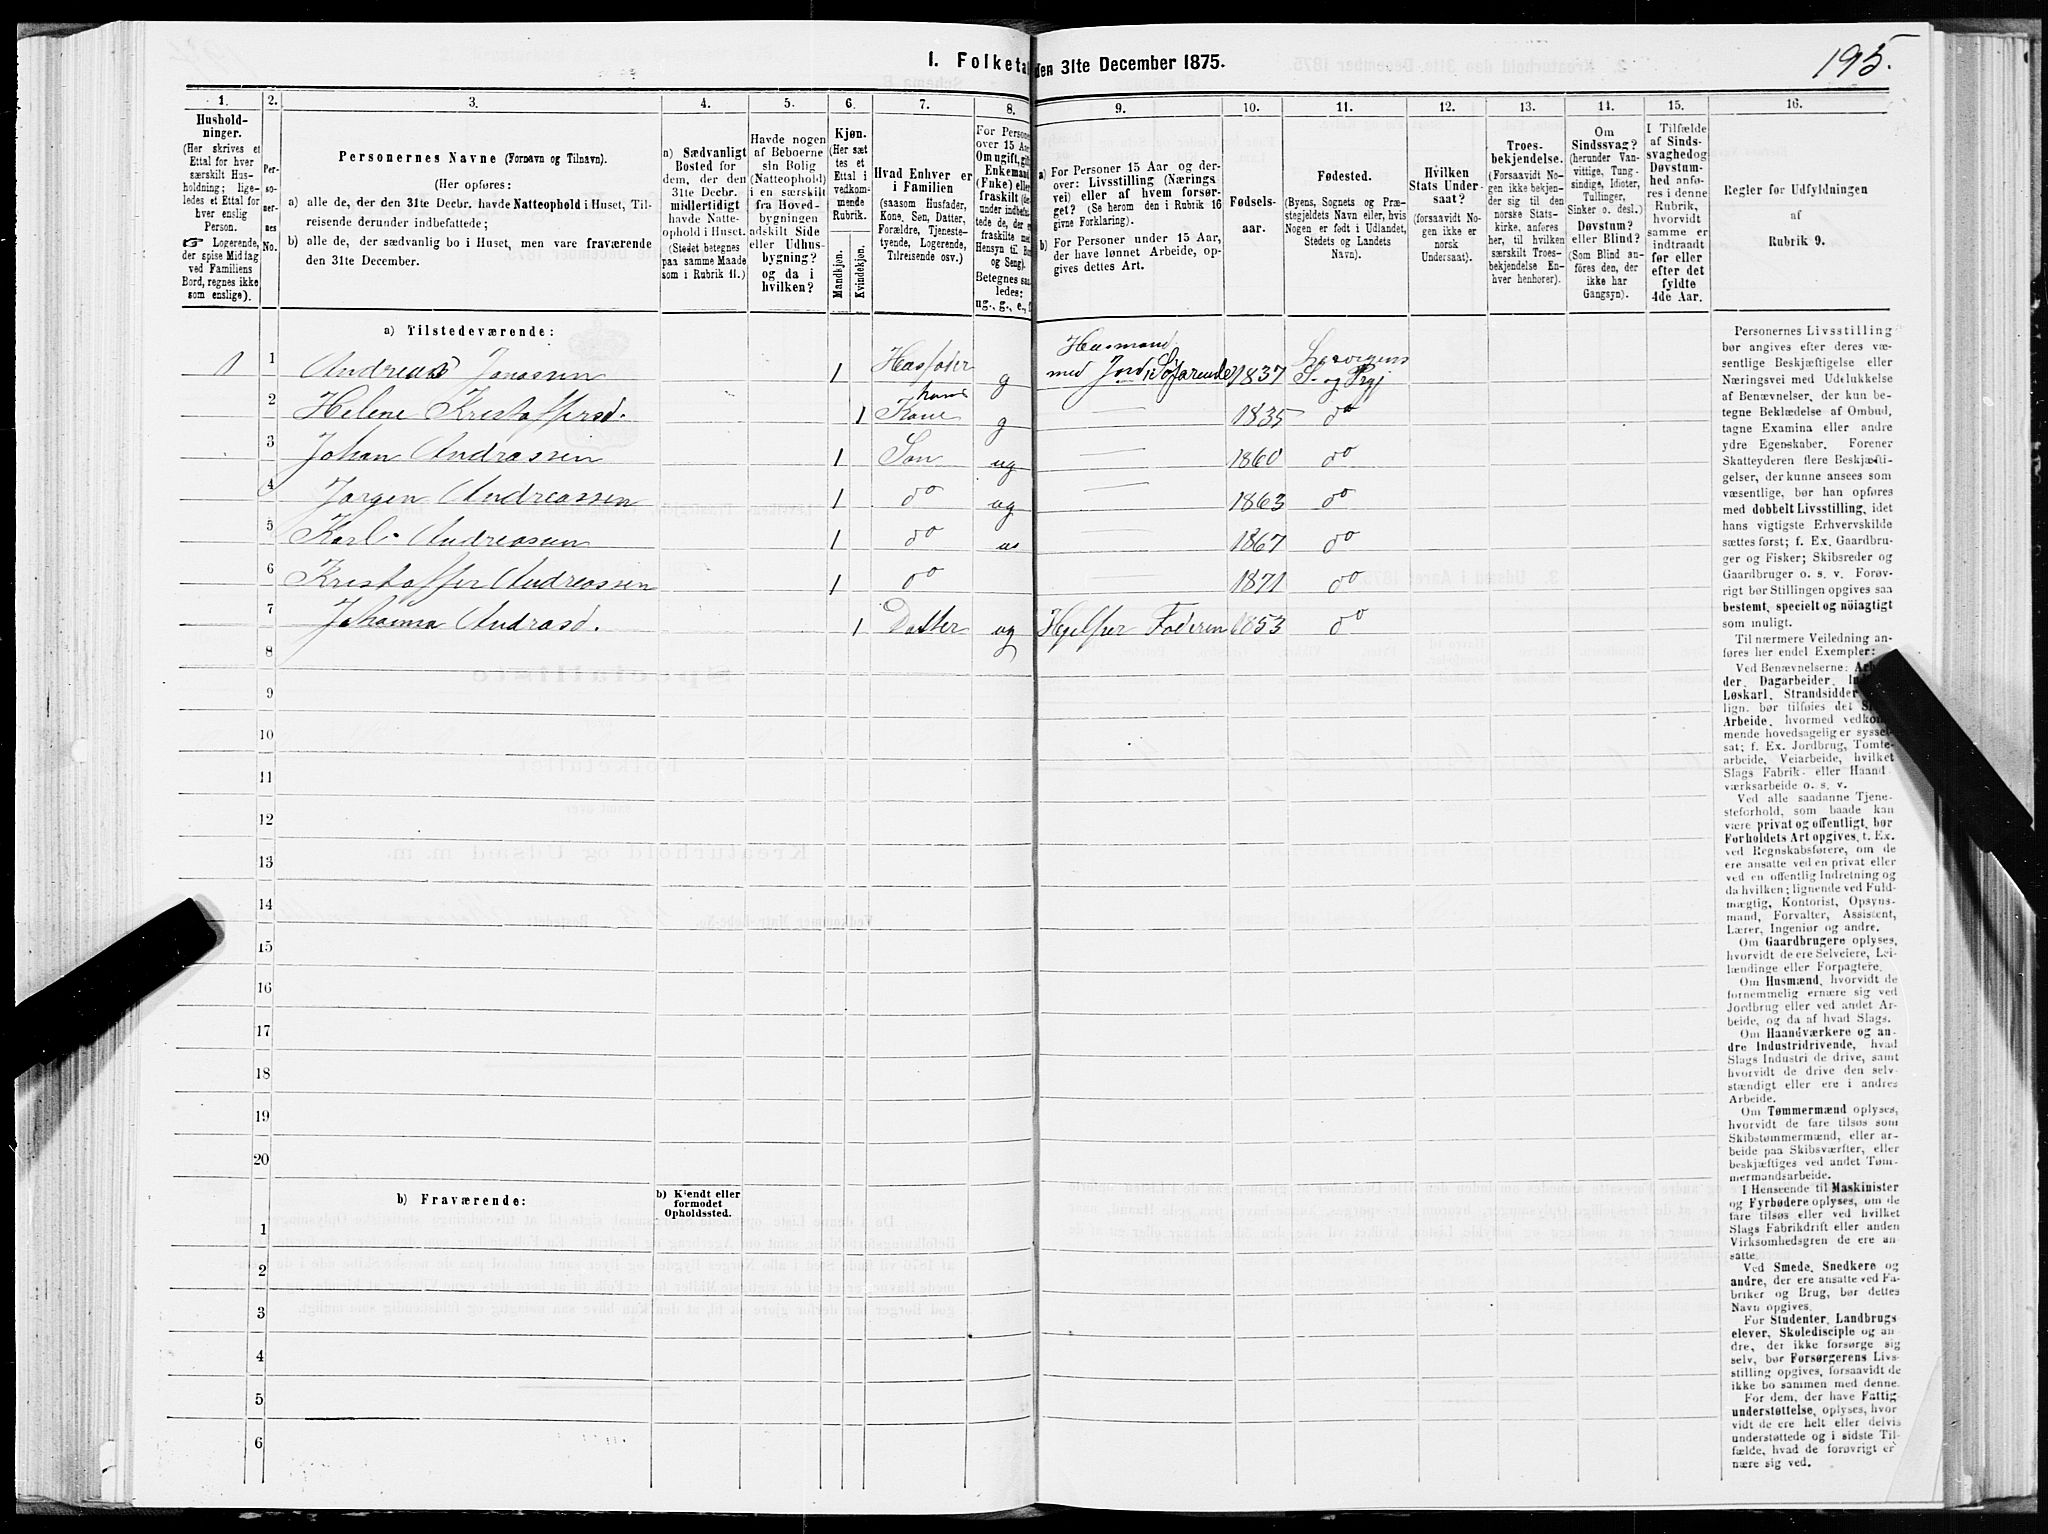 I. Folketal den 31te December 1875.
195.
1.
2.
3.
4.
5.
6.
7.
8.
9.
10.
11.
12.
13.
14.
15.
16.
Hushold-
ninger.
(Her skrives et
Ettal for hver
særskilt Hus-
holdning; lige-
ledes et Ettal for
hver enslig
Person.
☞ Logerende,
der spise Middag
ved Familiens
Bord, regnes ikke
som enslige).
Per-
so-
ner-
nes
No.
Personernes Navne (Fornavn og Tilnavn).
(Her opføres:
a) alle de, der den 31te Decbr. havde Natteophold i Huset, Til-
reisende derunder indbefattede;
b) alle de, der sædvanlig bo i Huset, men vare fraværende
den 31te December.
a) Sædvanligt
Bosted for
dem, der den
31te Decbr.
midlertidigt
havde Natte-
ophold i Huset.
(Stedet betegnes
paa samme Maade
som i Rubrik 11.)
Havde nogen
af Beboerne
sin Bolig
(Natteophold)
i en særskilt
fra Hoved-
bygningen
adskilt Side
eller Udhus-
bygning?
og da i
hvilken?
Kjøn.
(Her sæt
tes et
Ettal i
vedkom-
mende
Rubrik.
Mandkjøn.
Kvindekjøn.
Hvad Enhver er
i Familien
(saasom Husfader,
Kone, Søn, Datter,
Forældre, Tjeneste-
tyende, Logerende,
Tilreisende osv.)
For Persone
over 15 Aar
Om ugift, gift
Enkemand
(Enke) eller
fraskilt (de
under indbefat-
tede de, der e
fraskilte med
Hensyn til Bo
og Seng).
Betegnes saa
ledes:
ug., g., e.,
a) For Personer 15 Aar og der-
over: Livsstilling (Nærings
vei) eller af hvem forsør-
get? (Se herom den i Rubrik 16
givne Forklaring).
b) For Personer under 15 Aar,
der have lønnet Arbeide, op-
gives dettes Art.
Fødsels-
aar.
Fødested.
(Byens, Sognets og Præ-
stegjeldets Navn eller, hvis
Nogen er født i Udlandet,
Stedets og Landets
Navn).
Hvilken
Stats Under-
saat?
(forsaavidt No-
gen ikke er
norsk
Undersaat).
Troes-
bekjendelse.
(Forsaavidt No-
gen ikke bekjen-
der sig til den
norske Stats-
kirke, anføres
her, til hvilken
særskilt Troes-
bekjendelse En-
hver henhører).
Om
Sindssvag?
(herunder Van-
vittige, Tung-
sindige, Idioter,
Tullinger,
Sinker o. desl.)
Døvstum?
eller Blind?
(Som Blind an-
føres den, der
ikke har
Gangsyn).
I Tilfælde
af Sinds-
svaghed og
Døvstum-
hed anfø-
res i denne
Rubrik,
hvorvidt
samme er
indtraadt
før eller
efter det
fyldte
4de Aar.
Regler for Udfyldningen
af
Rubrik 9.
a) Tilstedeværende:
1 1 Andreas Jonassen 1 Husfader g Husmand med Jord, Søfarende 1837 S. og Prgj
2 Helene Kristoffersd. 1 hans Kone g — 1835 do
3 Johan Andrassen 1 Søn ug — 1860 do
4 Jørgen Andreassen 1 do ug — 1863 do
5 Karl Andreassen 1 do — 1867 do
6 Kristoffer Andreassen 1 do 1871 do
7 Johanna Andrasd. 1 Datter ug Hjelper Faderen 1853 do
8
9
10
11
12
13
14
15
16
17
18
19
20
b) Fraværende:
b) Kjendt eller
formodet
Opholdssted.
1
2
3
4
5
6
Personernes Livsstilling
bør angives efter deres væ-
sentlige Beskjæftigelse eller
Næringsvei med Udelukkelse
af Benævnelser, der kun be-
tegne Beklædelse af Ombud,
tagne Examina eller andre
ydre Egenskaber. Forener
Skatteyderen flere Beskjæfti-
gelser, der kunne ansees som
væsentlige, bør han opføres
med dobbelt Livsstilling, idet
hans vigtigste Erhvervskilde
sættes først; f. Ex. Gaardbru-
ger og Fisker; Skibsreder og
Gaardbruger o. s. v. Forøv-
rigt bør Stillingen opgives saa
bestemt, specielt og nöiagtigt
som muligt.
Til nærmere Veiledning an-
føres her endel Exempler:
Ved Benævnelserne: Arbei-
der, Dagarbeider, In
Løskarl, Strandsidder
lign. bør tilføies det Sl
Arbeide, hvormed vedkom-
mende hovedsagelig er syssel-
sat; f. Ex. Jordbrug, Tomte-
arbeide, Veiarbeide, hvilket
Slags Fabrik- eller Haand-
værksarbeide o. s. v.
Ved alle saadanne Tjene-
steforhold, som baade kan
være privat og offentligt, bør
Forholdets Art opgives, t. Ex.
ved Regnskabsførere, om de
ere ansatte ved en privat eller
ved en offentlig Indretning og
da hvilken; lignende ved Fuld-
mægtig, Kontorist, Opsyns-
mand, Forvalter, Assistent,
Lærer, Ingeniør og andre.
Om Gaardbrugere oplyses,
hvorvidt de ere Selveiere, Lei-
lændinge eller Forpagtere.
Om Husmænd, hvorvidt de
fornemmelig ernære sig ved
Jordbrug eller ved andet Ar-
beide, og da af hvad Slags.
Om Haandværkere og an-
dre Industridrivende, hvad
Slags Industri de drive, samt
hvorvidt de drive den selv-
stændigt eller ere i andres
Arbeide.
Om Tømmermænd oplyses,
hvorvidt de fare tilsøs som
Skibstømmermænd, eller ar-
beide paa Skibsværfter, eller
beskjæftiges ved andet Tøm-
mermandsarbeide.
I Henseende til Maskinister
og Fyrbødere oplyses, om de
fare tilsøs eller ved hvilket
Slags Fabrikdrift eller anden
Virksomhedsgren de ere an-
satte.
Ved Smede, Snedkere og
andre, der ere ansatte ved Fa-
briker og Brug, bør dettes
Navn opgives.
For Studenter, Landbrugs-
elever, Skoledisciple og an-
dre, der ikke forsørge sig
selv, bør Forsørgerens Livs-
stilling opgives, forsaavidt de
ikke bo sammen med denne.
For dem, der have Fattig-
understøttelse, oplyses, hvor-
vidt de ere helt eller delvis
understøttede og i sidste Til-
fælde, hvad de forøvrigt er-
nære sig ved.